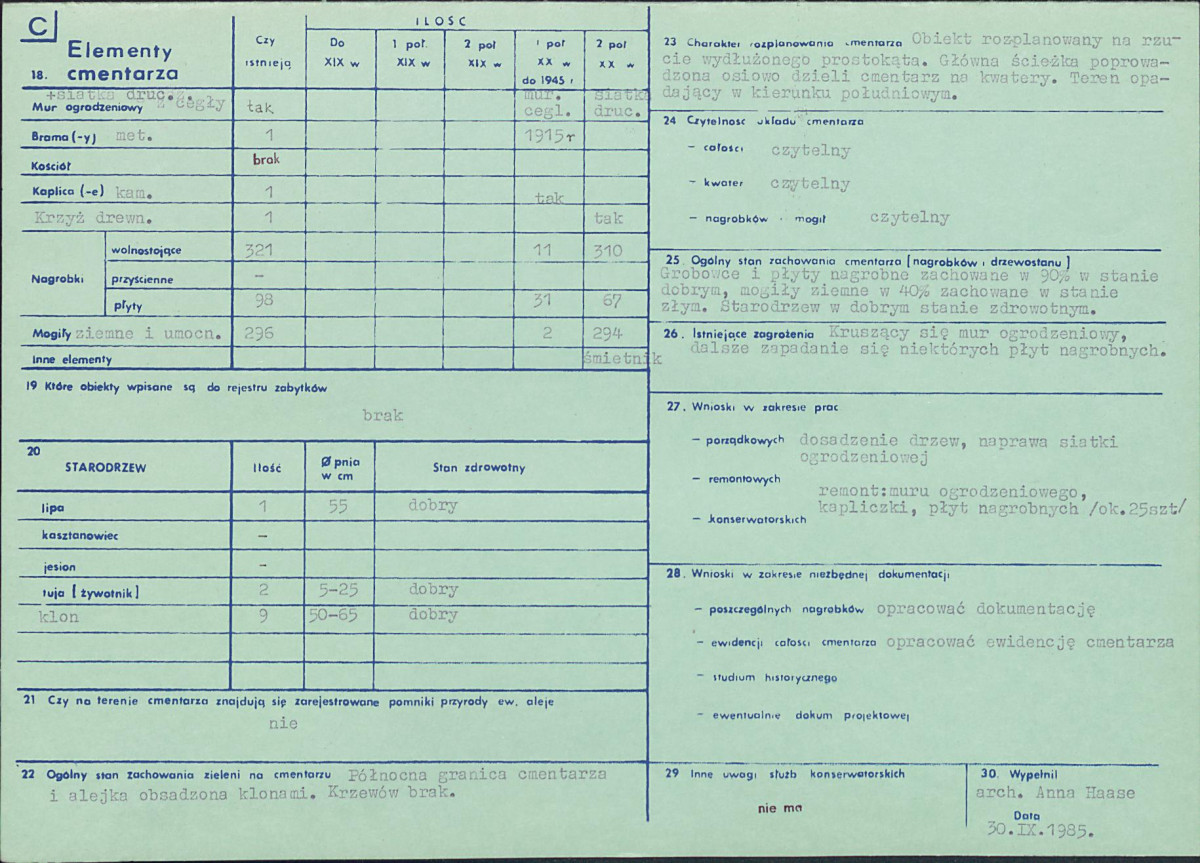 C
Elementy
18. cmentarza
Czy
istnieją
ILOŚC
Do
XIX w
1 poł.
XIX w
2 poł
XIX w
1 poł
XX w
do 1945 r
2 poł
XX w
+siatka druc.z
Mur ogrodzeniowy z cegły tak mur. cegl. siatka druc.
Brama (-y) met. 1 1915r
Kościół brak
Kaplica (-e) kam. 1 tak
Krzyż drewn. 1 tak
Nagrobki
wolnostojące 321 11 310
przyścienne –
płyty 98 31 67
Mogiły ziemne i umocn. 296 2 294
Inne elementy śmietnik
19 Które obiekty wpisane są do rejestru zabytków
brak
20
STARODRZEW Ilość Ø pnia w cm Stan zdrowotny
lipa 1 55 dobry
kasztanowiec –
jesion –
tuja [żywotnik] 2 5-25 dobry
klon 9 50-65 dobry
21 Czy na terenie cmentarza znajdują się zarejestrowane pomniki przyrody ew. aleje
nie
22 Ogólny stan zachowania zieleni na cmentarzu Północna granica cmentarza
i alejka obsadzona klonami. Krzewów brak.
23 Charakter rozplanowania cmentarza Obiekt rozplanowany na rzu-
cie wydłużonego prostokąta. Główna ścieżka poprowa-
dzona osiowo dzieli cmentarz na kwatery. Teren opa-
dający w kierunku południowym.
24 Czytelność układu cmentarza
– całości czytelny
– kwater czytelny
– nagrobków i mogił czytelny
25. Ogólny stan zachowania cmentarza [nagrobków i drzewostanu]
Grobowce i płyty nagrobne zachowane w 90% w stanie
dobrym, mogiły ziemne w 40% zachowane w stanie
złym. Starodrzew w dobrym stanie zdrowotnym.
26. Istniejące zagrożenia Kruszący się mur ogrodzeniowy,
dalsze zapadanie się niektórych płyt nagrobnych.
27. Wnioski w zakresie prac
– porządkowych dosadzenie drzew, naprawa siatki
ogrodzeniowej
– remontowych
remont:muru ogrodzeniowego,
kapliczki, płyt nagrobnych /ok.25szt/
– konserwatorskich
28. Wnioski w zakresie niezbędnej dokumentacji
– poszczególnych nagrobków opracować dokumentację
– ewidencji całości cmentarza opracować ewidencję cmentarza
– studium historycznego
– ewentualnie dokum projektowej
29 Inne uwagi służb konserwatorskich
nie ma
30. Wypełnił
arch. Anna Haase
Data
30.IX.1985.